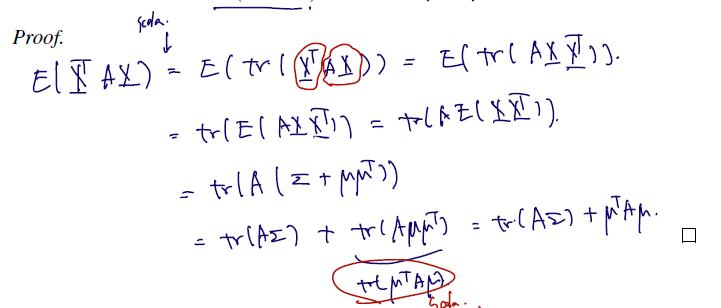 scala.
Proof.
E(X^T AX) = E(tr(X^T AX)) = E(tr(AXX^T)).
= tr(E(AXX^T)) = tr(AE(XX^T)).
= tr(A(Σ + μμ^T))
= tr(AΣ) + tr(Aμμ^T) = tr(AΣ) + μ^T Aμ. □
tr(μ^T Aμ)
scala.